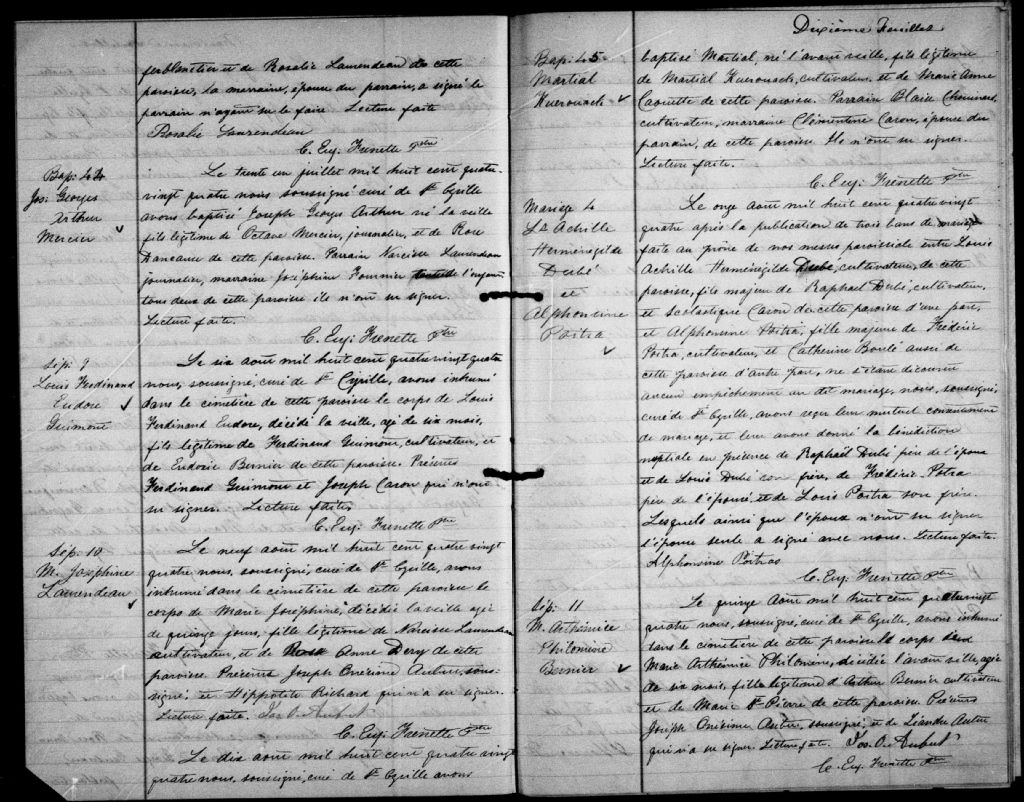 ferblantier et de Rosalie Laurendeau de cette
paroisse, la marraine, épouse du parrain, a signé le
parrain n'ayant su le faire Lecture faite
Rosalie Laurendeau
C. Eug. Frenette Ptre
Bap: 44
Jos: Georges
Arthur
Mercier
Le trente un juillet mil huit cent quatre
vingt quatre nous soussigné curé de St Cyrille
avons baptisé Joseph Georges Arthur né la veille
fils légitime de Octave Mercier, journalier, et de Rose
Dancause de cette paroisse. Parrain Narcisse Laurendeau
journalier, marraine Joséphine Fournier
tous deux de cette paroisse ils n'ont su signer.
Lecture faite.
C. Eug. Frenette Ptre
Sép: 9
Louis Ferdinand
Eudore
Guimont
Le six août mil huit cent quatre vingt quatre
nous, soussigné, curé de St Cyrille, avons inhumé
dans le cimetière de cette paroisse le corps de Louis
Ferdinand Eudore, décédé la veille, agé de six mois,
fils légitime de Ferdinand Guimont, cultivateur, et
de Eudoxie Bernier de cette paroisse. Présents
Ferdinand Guimont et Joseph Caron qui n'ont
su signer. Lecture faite.
C. Eug. Frenette Ptre
Sép: 10
M. Josephine
Laurendeau
Le neuf août mil huit cent quatre vingt
quatre nous, soussigné, curé de St Cyrille, avons
inhumé dans le cimetière de cette paroisse le
corps de Marie Joséphine, décédée la veille agée
de quinze jours, fille légitime de Narcisse Laurendeau
cultivateur, et de Anne Dery de cette
paroisse Présents Joseph Onésime Autur, sous-
signé, et Hippolite Richard qui n'a su signer.
Lecture faite. Jos O. Aubut
C. Eug. Frenette Ptre
Le dix août mil huit cent quatre vingt
quatre nous, soussigné, curé de St Cyrille avons
Dixième Feuillet
Bap: 45
Martial
Kuerouack
baptisé Martial, né l'avant veille, fils légitime
de Martial Kuerouack, cultivateur, et de Marie Anne
Caouette de cette paroisse. Parrain Blaise Chouinard,
cultivateur, marraine Clémentine Caron, épouse du
parrain, de cette paroisse Ils n'ont su signer.
Lecture faite.
C. Eug. Frenette Ptre
Mariage 4
Ls Achille
Herménégilde
Dubé
et
Alphonsine
Poitra
Le onze août mil huit cent quatre vingt
quatre après la publication de trois bans de mariage
faite au prône de nos messes paroissiale entre Louis
Achille Herménégilde Dubé, cultivateur, de cette
paroisse, fils majeur de Raphaël Dubé, cultivateur,
et Scolastique Caron de cette paroisse d'une part,
et Alphonsine Poitra, fille majeure de Frédéric
Poitra, cultivateur, et Catherine Boulé aussi de
cette paroisse d'autre part, ne s'étant découvert
aucun empêchement au dit mariage, nous, soussigné,
curé de St Cyrille, avons reçu leur mutuel consentement
de mariage, et leur avons donné la bénédiction
nuptiale en présence de Raphaël Dubé père de l'époux
et de Louis Dubé son frère, de Frédéric Potra
père de l'épouse, et de Louis Poitra son frère.
Lesquels ainsi que l'époux n'ont su signer
l'épouse seule a signé avec nous. Lecture faite.
Alphonsine Poitras
C. Eug. Frenette Ptre
Sép: 11
M. Arthémise
Philomène
Bernier
Le quinze août mil huit cent quatre vingt
quatre nous, soussigné, curé de St Cyrille, avons inhumé
dans le cimetière de cette paroisse le corps de
Marie Arthémise Philomène, décédée l'avant veille, agée
de six mois, fille légitime d'Arthur Bernier cultivateur
et de Marie St Pierre de cette paroisse Présents
Joseph Onésime Autur, soussigné, et de Liandre Autur
qui n'a su signer. Lecture faite. Jos. O. Aubut
C. Eug. Frenette Ptre